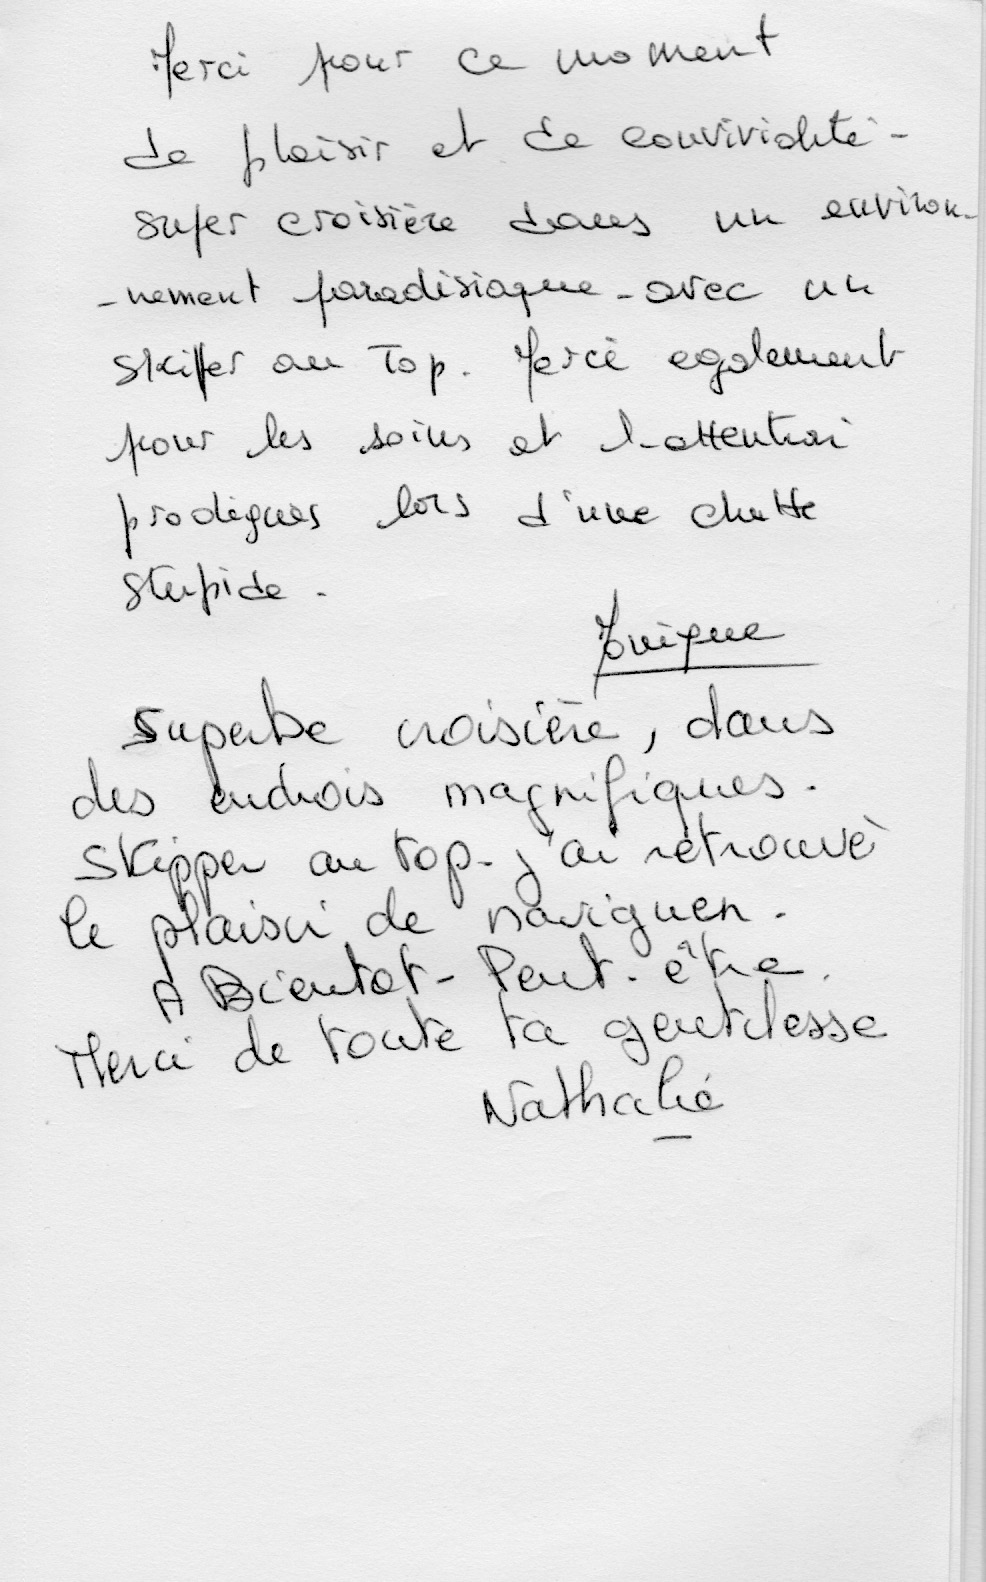 Merci pour ce moment
de plaisir et de convivialité -
super croisière dans un environ-
-nement paradisiaque - avec un
skipper au Top. Merci egalement
pour les soins et l'attention
prodigues lors d'une chutte
stupide.
Superbe croisière, dans
des endrois magnifiques.
Skipper au top - j'ai retrouvé
le plaisir de naviguer.
A Bientot - Peut-être.
Merci de toute ta gentilesse
Nathalie